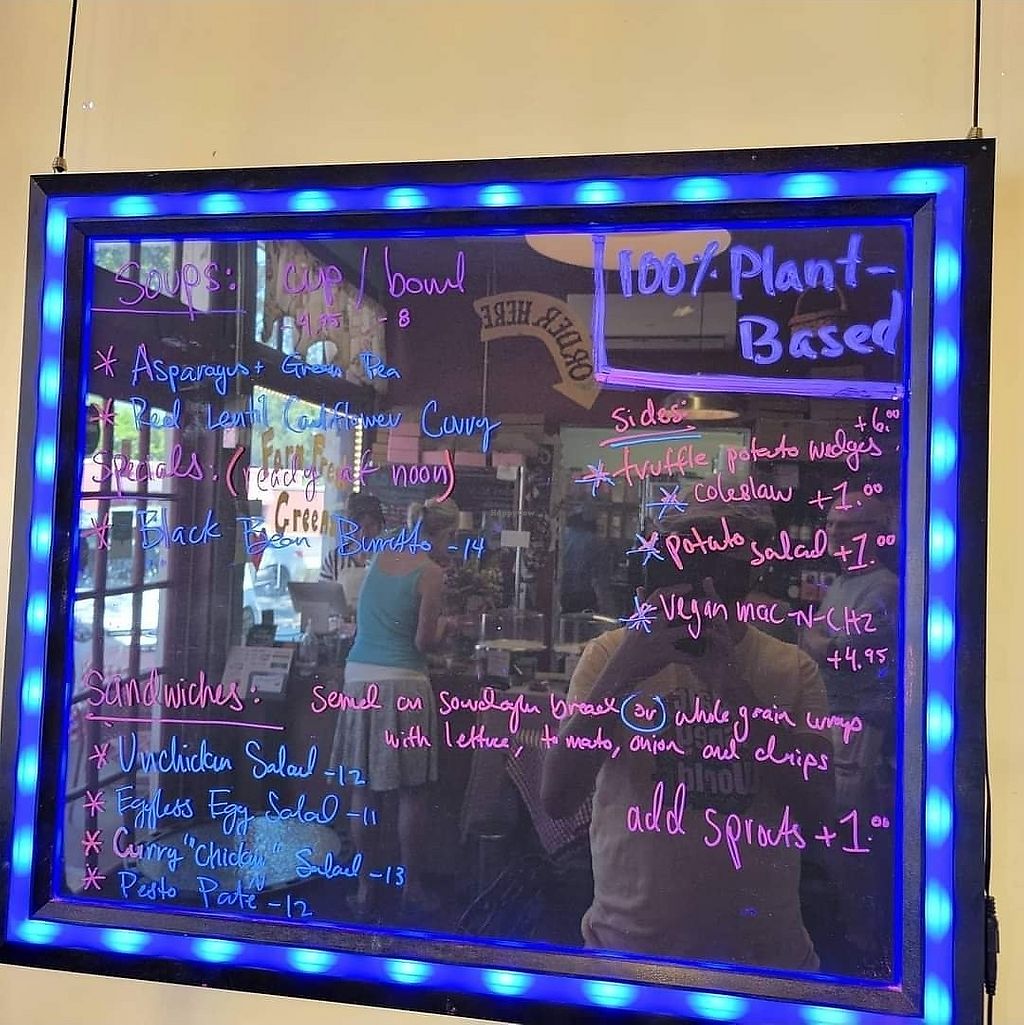 Soups: cup / bowl
-4.95 - 8
* Asparagus + Green Pea
* Red Lentil Cauliflower Curry
Specials: (ready at noon)
* Black Bean Burrito -14
100% Plant-
Based
Sides:
+6.00
* truffle potato wedges
* coleslaw +1.00
* potato salad +1.00
* Vegan mac-N-CHZ
+4.95
Sandwiches: Served on sourdough bread or whole grain wraps
with lettuce, tomato, onion and chips
* Unchicken Salad -12
* Eggless Egg Salad -11
* Curry "Chicken" Salad -13
* Pesto Paté -12
add sprouts +1.00
ORDER HERE